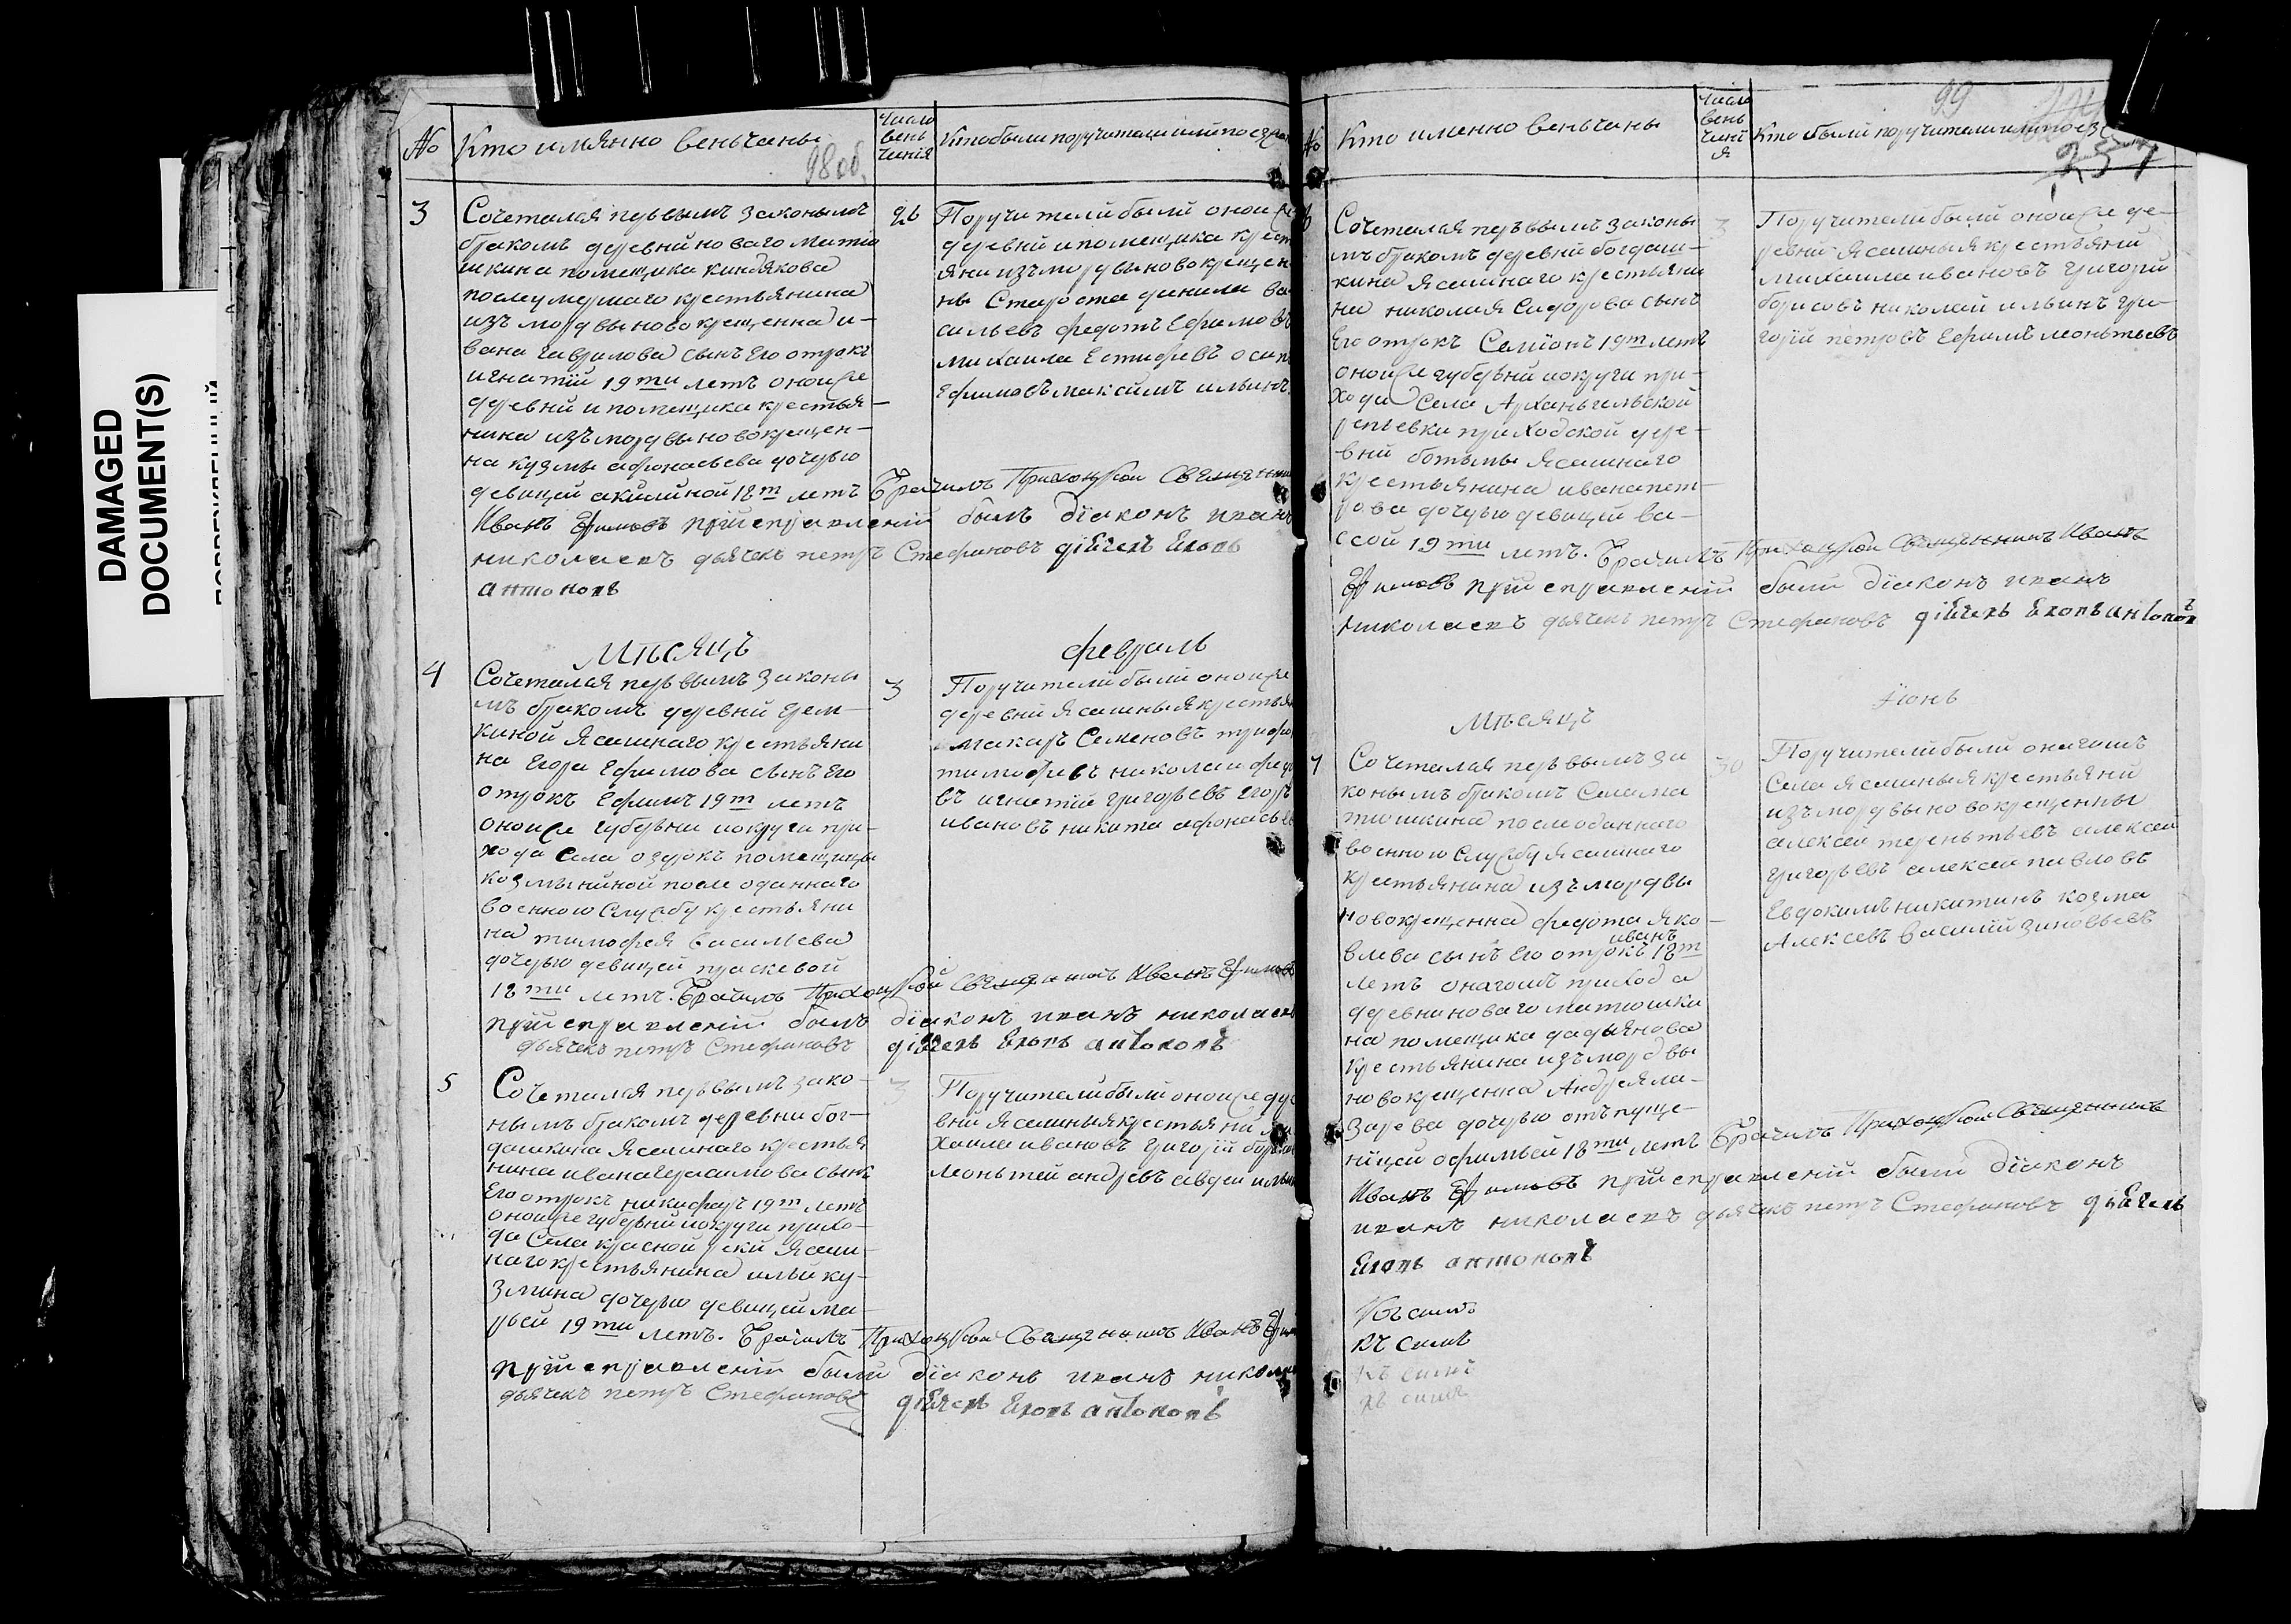 DAMAGED
DOCUMENT(S)
No
Кто имянно веньчаны
число
вень
чания
Кто были поручители или поезжа
98 об.
3
Сочетался первымъ законымъ
бракомъ деревни новаго матю
шкина помещика киндякова
после умершаго крестьянина
изъ мордвы новокрещенна и-
вана гаврилова сынъ Его отрокъ
игнатий 19ти летъ оной же
деревни и помещика крестья-
нина изъ мордвы новокрещен-
на кузмы афонасьева дочерью
девицей акилиной 18т летъ
26
Поручители были оной же
деревни и помещика крест
яни изъ мордвы новокрещен
ны Староста данила ва
сильевъ федотъ Ефимовъ
михаила Естифевъ осип
Ефимовъ максимъ ильинъ
Брачилъ Приходской Священни
Иванъ Ефимовъ при справлении былъ диаконъ иванъ
николаевъ дьячекъ петръ Стефановъ дьячекъ Егоръ
антоновъ
Мѣсяцъ февраль
4
Сочетался первымъ законы
мъ бракомъ деревни Ерем-
киной Ясашнаго крестьяни
на Егора Ефимова сынъ Его
отрокъ Ефимъ 19т летъ
оной же губерни и округи при-
хода Села оздрокъ помещицы
козминыной после оданнаго
военною Службу крестьяни
на тимофея васильева
дочерью девицей праскевой
18ти летъ. Брачилъ Приходской Священникъ Иванъ Ефимовъ
при справлении былъ диаконъ иванъ николаевъ
дьячекъ петръ Стефановъ дьячекъ Егоръ антоновъ
3
Поручители были оной же
деревни Ясашныя крестья
макаръ Семеновъ трифо
тимофевъ николай федо
въ игнатий григорьевъ Егоръ
ивановъ никита афонасьев
5
Сочетался первымъ зако-
нымъ бракомъ деревни бог-
дашкина Ясашнаго крестья
нина ивана герасимова сынъ
Его отрокъ никифаръ 19т летъ
оной же губерни и округи прихо-
да Села красной реки Ясаш-
наго крестьянина ильи ку-
змина дочерью девицей ма-
рьей 19ти летъ. Брачилъ Приходской Священникъ Иванъ Ефим
при справлении были диаконъ иванъ никола
дьячекъ петръ Стефановъ дьячекъ Егоръ антоновъ
3
Поручители были оной же дере
вни Ясашныя крестьяни ми
хаила ивановъ григорий борисов
леоньтей андревъ авдей ильин
No
Кто именно веньчаны
число
вень
чани
я
Кто были поручители или поез
99
251
6
Сочетался первымъ законы
мъ бракомъ деревни богдаш-
кина Ясашнаго крестьяни
на николая Сидорова сынъ
Его отрокъ Семионъ 19т летъ
оной же губерьни и округи при-
хода Села Арханьгельской
репьевки приходской дере-
вни ботьмы Ясашнаго
крестьянина ивана пет-
рова дочерью девицей ва-
ссой 19ти летъ. Брачилъ Приходской Священникъ Иванъ
Ефимовъ при справлении были диаконъ иванъ
николаевъ дьячекъ петръ Стефановъ дьячекъ Егоръ антоновъ
3
Поручители были оной же де-
ревни Ясашныя крестьяни
михаила ивановъ григорий
борисовъ николай ильинъ гри-
горий петровъ Ефимъ леоньтьевъ
Мѣсяцъ Июнь
7
Сочетался первымъ за
конымъ бракомъ Села ма
тюшкина после оданнаго
военною Службу Ясашнаго
крестьянина изъ мордвы
новокрещенна федота яко-
влева сынъ Его отрокъ иванъ 18т
летъ онагошъ прихода
деревни новаго матюшки
на помещика дадьянова
крестьянина изъ мордвы
новокрещенна Андрея ла-
зарева дочерью отъпуще-
ницей офимьей 18ти летъ Брачилъ Приходской Священникъ
Иванъ Ефимовъ при справлении были диаконъ
иванъ николаевъ дьячекъ петръ Стефановъ дьячекъ
Егоръ антоновъ
30
Поручители были онагошъ
Села ясашныя крестьяни
изъ мордвы новокрещенны
алексей тереньтьевъ алексей
григорьевъ алексей павловъ
Евдокимъ никитинъ козма
Алексевъ василий зиновьевъ